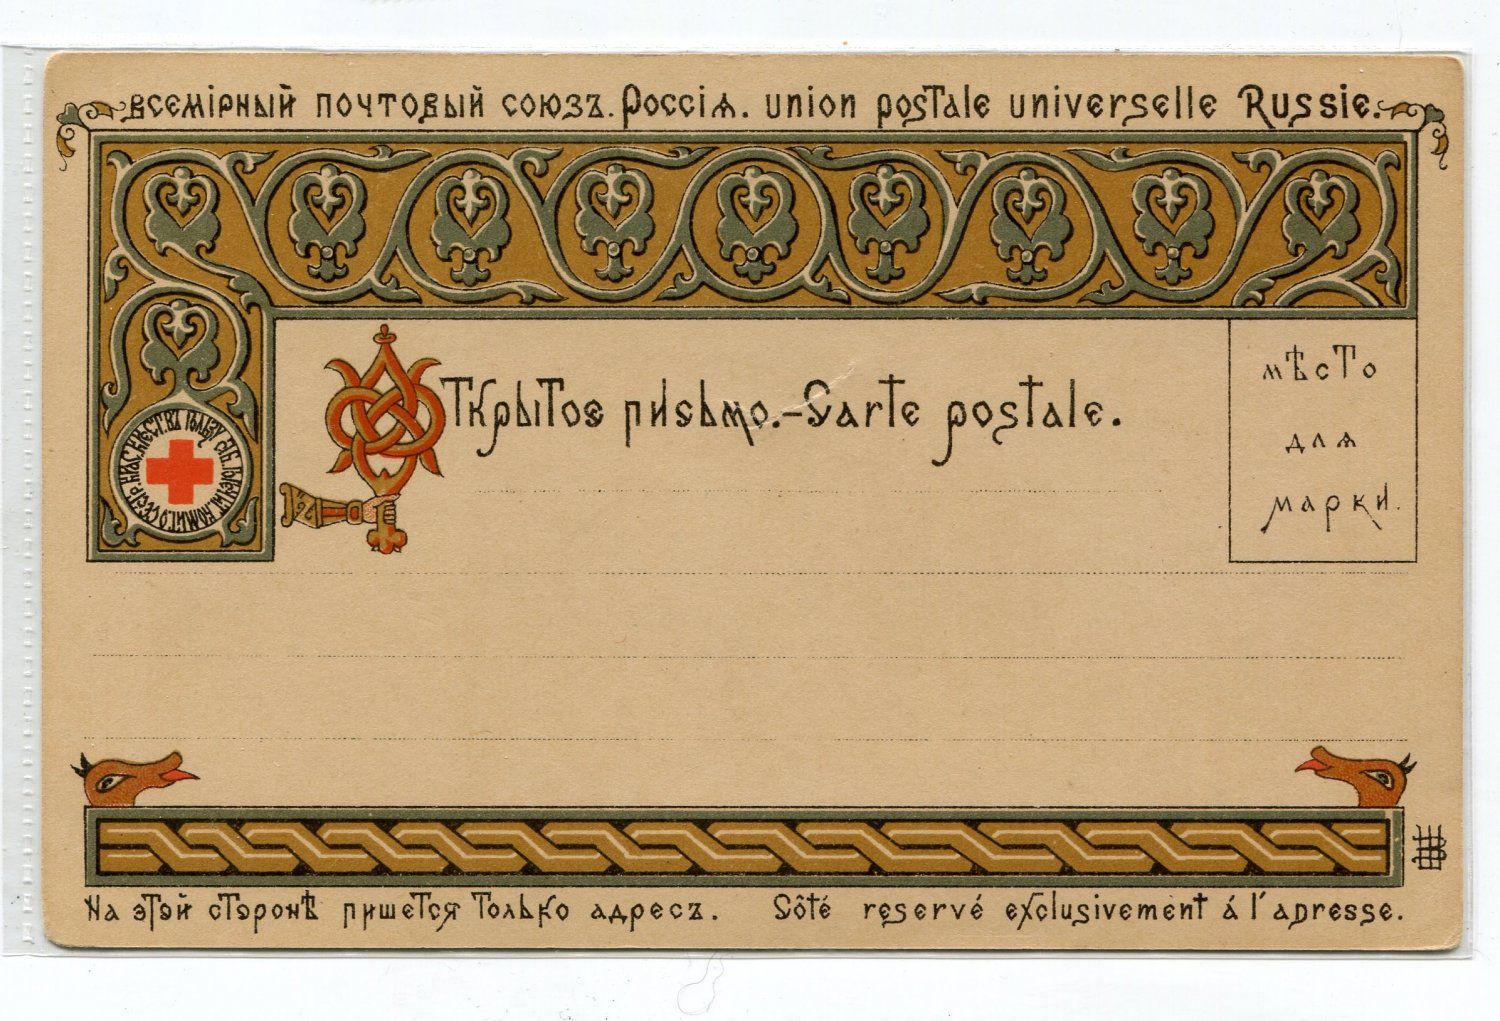 всемiрный почтовый союзъ. Россiя. union postale universelle Russie.
Открытое письмо.-Carte postale.
мѣсто
для
марки.
На этой сторонѣ пишется только адресъ. Côté reservé exclusivement á l'adresse.